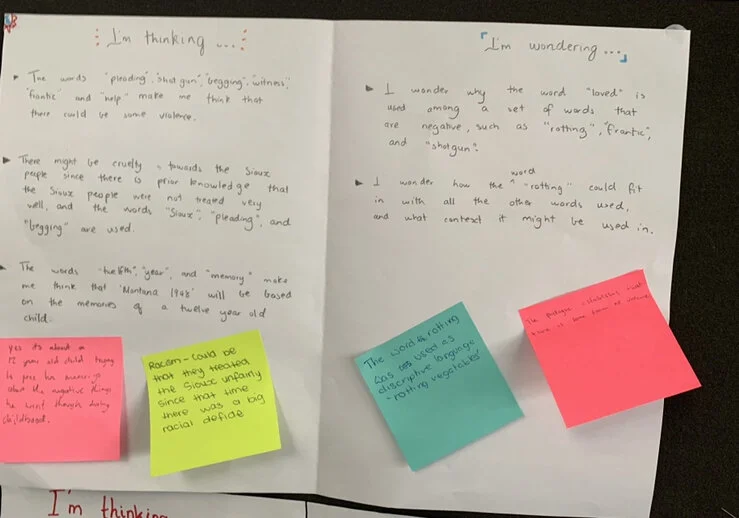 I'm thinking ...
▸ The words "pleading", "shotgun", "begging", "witness",
"frantic" and "help" make me think that
there could be some violence.
▸ There might be cruelty towards the Sioux
people since there is prior knowledge that
the Sioux people were not treated very
well, and the words "Sioux", "pleading", and
"begging" are used.
▸ The words "twelfth", "year", and "memory" make
me think that 'Montana 1948' will be based
on the memories of a twelve year old
child.
yes its about a
12 year old child trying
to
the negative things
he went through during
childhood.
Racism - could be
that they treated
the Sioux unfairly
since that time
there was a big
racial defide
I'm wondering...
▸ I wonder why the word "loved" is
used among a set of words that
are negative, such as "rotting", "frantic",
and "shotgun".
▸ I wonder how the word "rotting" could fit
in with all the other words used,
and what context it might be used in.
The word rotting
was used as
discriptive language
"rotting vegetables"
The prologue establishes that
there is some form of violence
I'm thinking